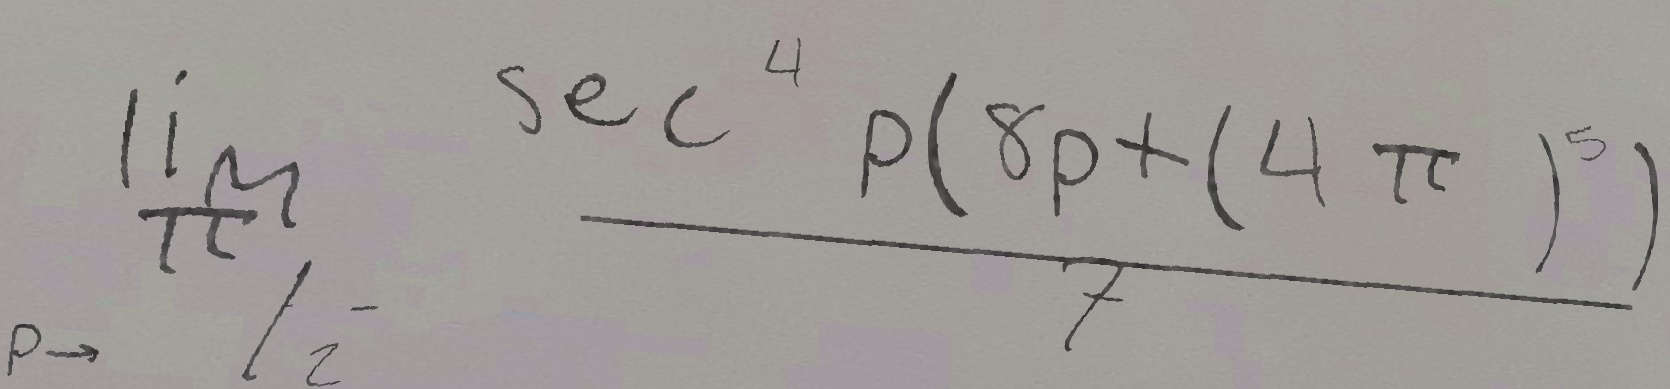 \lim_{p \to \pi/2^-} \frac{\sec^4 p(8p+(4\pi)^5)}{7}